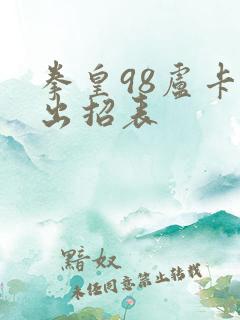 拳皇98盧卡
出招表
黯奴
未经同意禁止转载